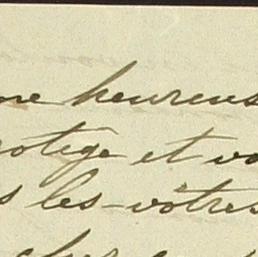 ne heureus
otège et vo
s les vôtres